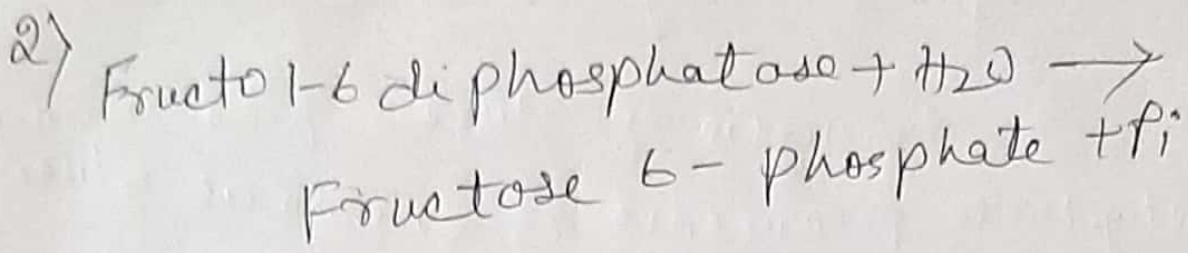 2) Fructo 1-6 diphosphatase + H2O →
Fructose 6- phosphate + Pi